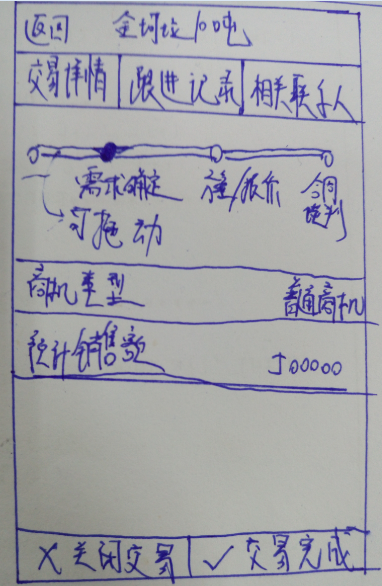 返回 全坷垃100吨
交易详情 跟进记录 相关联系人
需求确定 /报价 合同谈判
可拖动
商机类型 普通商机
预计销售额 500000
× 关闭交易 ✓ 交易完成